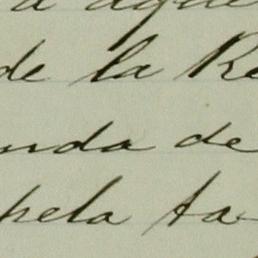 a aque
de la Re
nda de
pela ta-